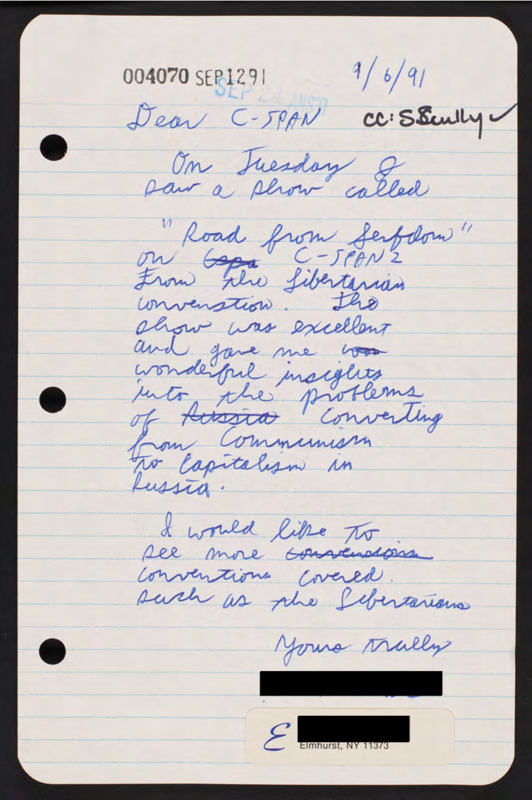 004070 SEP1291
9/6/91
SEP
Dear C-SPAN
cc: S Scully
On Tuesday I
saw a show called
"Road from Serfdom"
on Cspa C-SPAN 2
From the Libertarian
convenstion. The
show was excellent
and gave me was
wonderful insights
into the problems
of Russia Converting
from Communism
to Capitalism in
Russia.
I would like to
see more convensions
conventions covered.
such as the Libertarians
Yours trully
E
Elmhurst, NY 11373